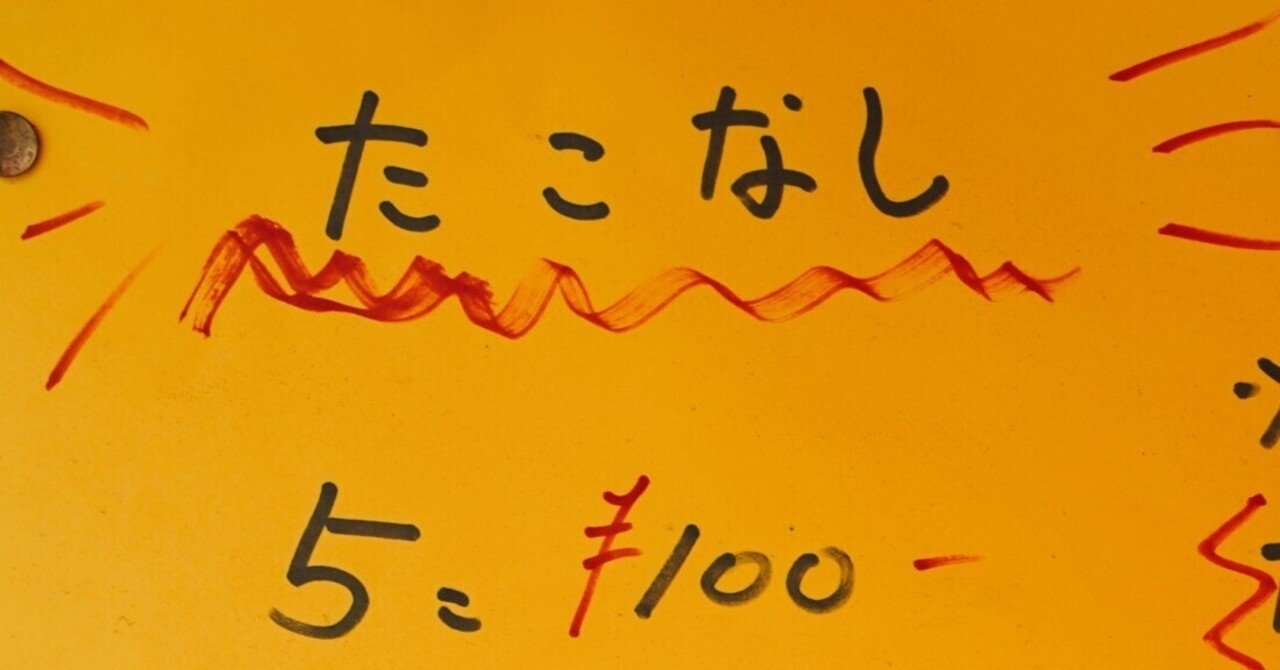 たこなし
5こ ¥100-